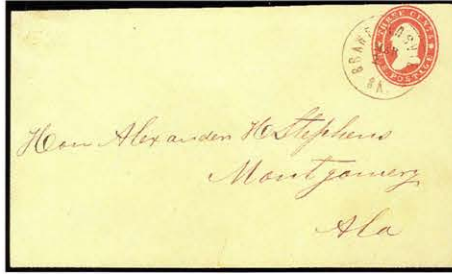 THREE CENTS
U.S. POSTAGE
GA.
Hon Alexander H Stephens
Montgomery
Ala